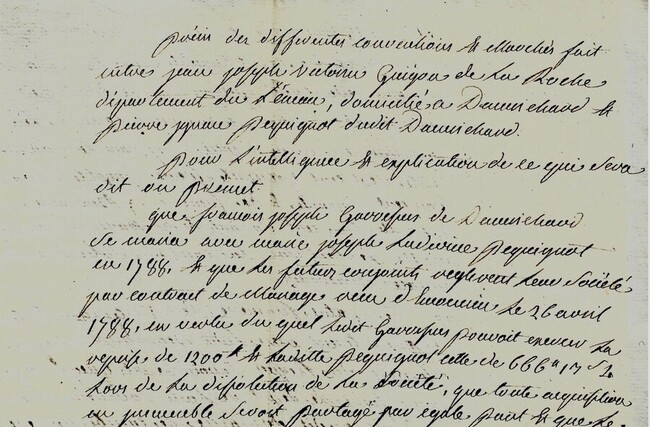 précis des differentes conventions & Marchés fait
entre jean joseph victoire Guigon de La Roche
département du Léman, domicilié a Damrichard &
pierre ignace Pequignot dudit Damrichard.
Pour L'intelligence & explication de ce qui Sera
dit on prémet
que francois joseph de Damrichard
Se maria avec marie joseph Ludivine Pequignot
en 1788. & que les futurs conjoints reglerent leur Société
par contract de Mariage le 26 avril
1788, en vertu du quel ledit pouvoit exercer La
reprise de 1200 & Laditte Pequignot celle de 666 17
Lors de La dissolution de La Société, que toute acquisition
en immeuble Seroit partagé par égale part & que Le